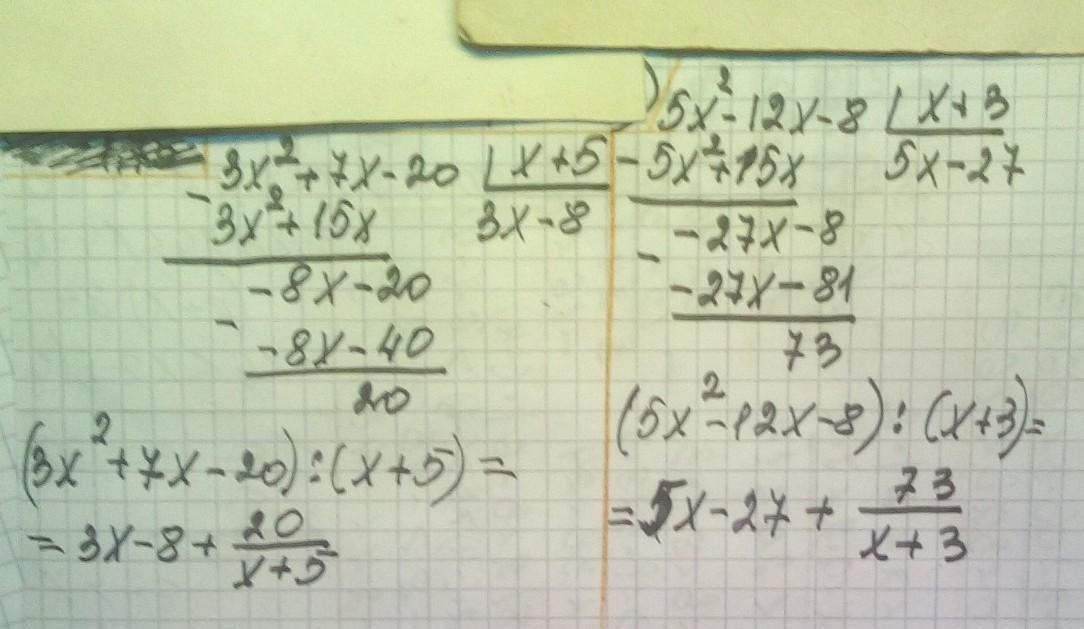 3x²+7x-20 | x+5
- 3x²+15x 3x-8
-8x-20
-
-8x-40
20
(3x²+7x-20):(x+5)=
=3x-8+ 20/(x+5)
) 5x²-12x-8 | x+3
- 5x²+15x 5x-27
-27x-8
-
-27x-81
73
(5x²-12x-8):(x+3)=
=5x-27+ 73/(x+3)